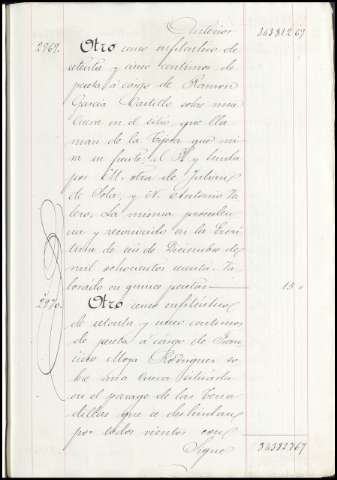 Anterior 34381267
2969. Otro censo enfitéutico de
setenta y cinco centimos de
peseta á cargo de Ramon
Garcia Castillo sobre una
Cueva en el sitio que lla-
man de la Tejera que mi-
ra su frente al N. y linda
por M. otra de Julian
de Sola, y N. Antonio Va-
lero. La misma proceden-
cia y reconocido en la Escri-
tura de seis de Diciembre de
mil ochocientos
lorado en quince pesetas 15.
2970. Otro censo enfitéutico
de setenta y cinco centimos
de peseta á cargo de Fran-
cisco Moya Rodriguez so-
bre una Cueva situada
en el parage de las
que se deslindan
por todos vientos con
Sigue 34382767